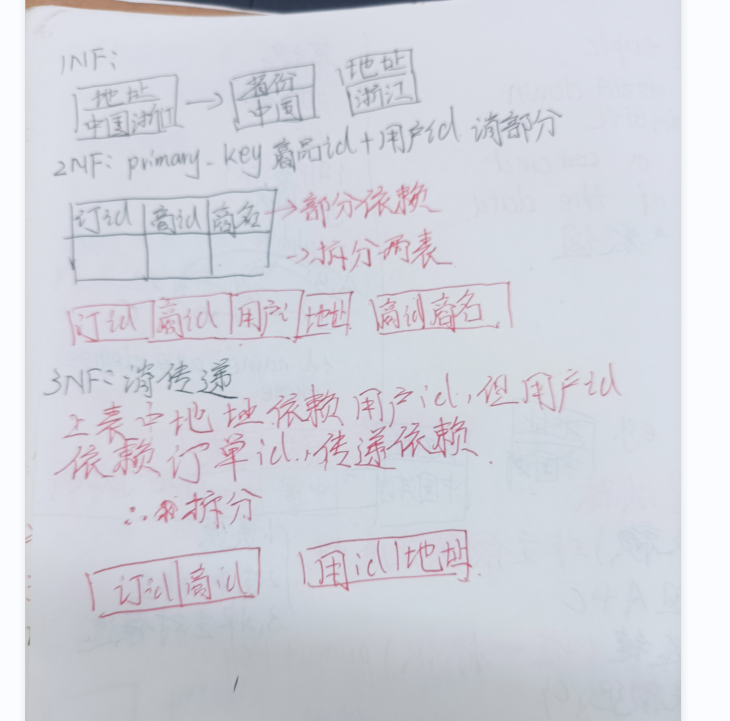 1NF:
地址 → 省份 地址
中国浙江 中国 浙江
2NF: primary-key 商品id+用户id 消部分
订id 商id 商名 →部分依赖
→拆分两表
订id 商id 用户i 地址 商id 商名
3NF: 消传递
上表中地址依赖用户id,但用户id
依赖订单id,传递依赖.
∴拆分
订id 商id 用id 地址